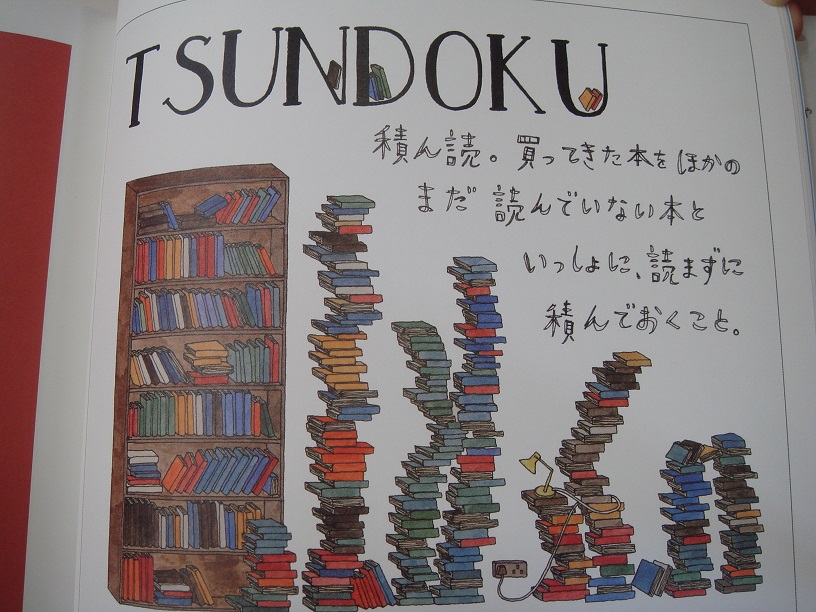 TSUNDOKU
積ん読。買ってきた本をほかの
まだ読んでいない本と
いっしょに、読まずに
積んでおくこと。